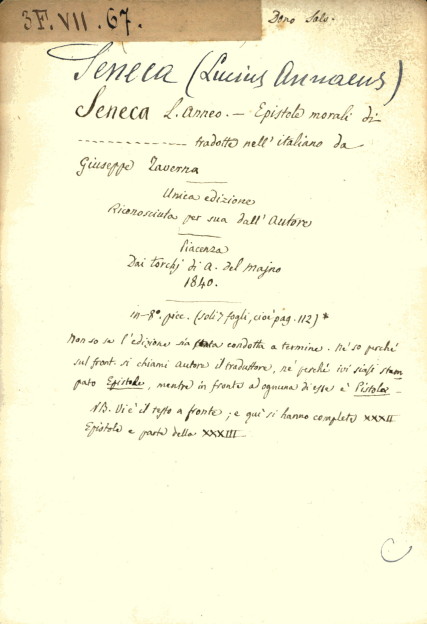 3F. VII. 67.
Dono Sals.
Seneca (Lucius Annaeus)
Seneca L. Anneo. — Epistole morali di
tradotte nell'italiano da
Giuseppe Taverna
Unica edizione
Riconosciuta per sua dall'Autore
Piacenza
Dai torchj di A. del Majno
1840.
in-8°. picc. (soli 7 fogli, cioè pag. 112) *
Non so se l'edizione sia stata condotta a termine. Nè so perchè
sul front. si chiami autore il traduttore, nè perchè ivi siasi stam
pato Epistole, mentre in fronte ad ognuna di esse è Pistola –
NB. Vi è il testo a fronte; e qui si hanno complete XXXII
Epistole e parte della XXXIII –